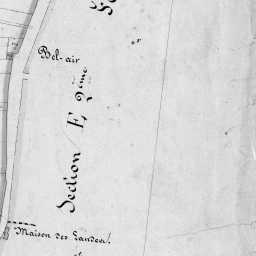 Bel-air
Section E, 2ème
Maison des Landes